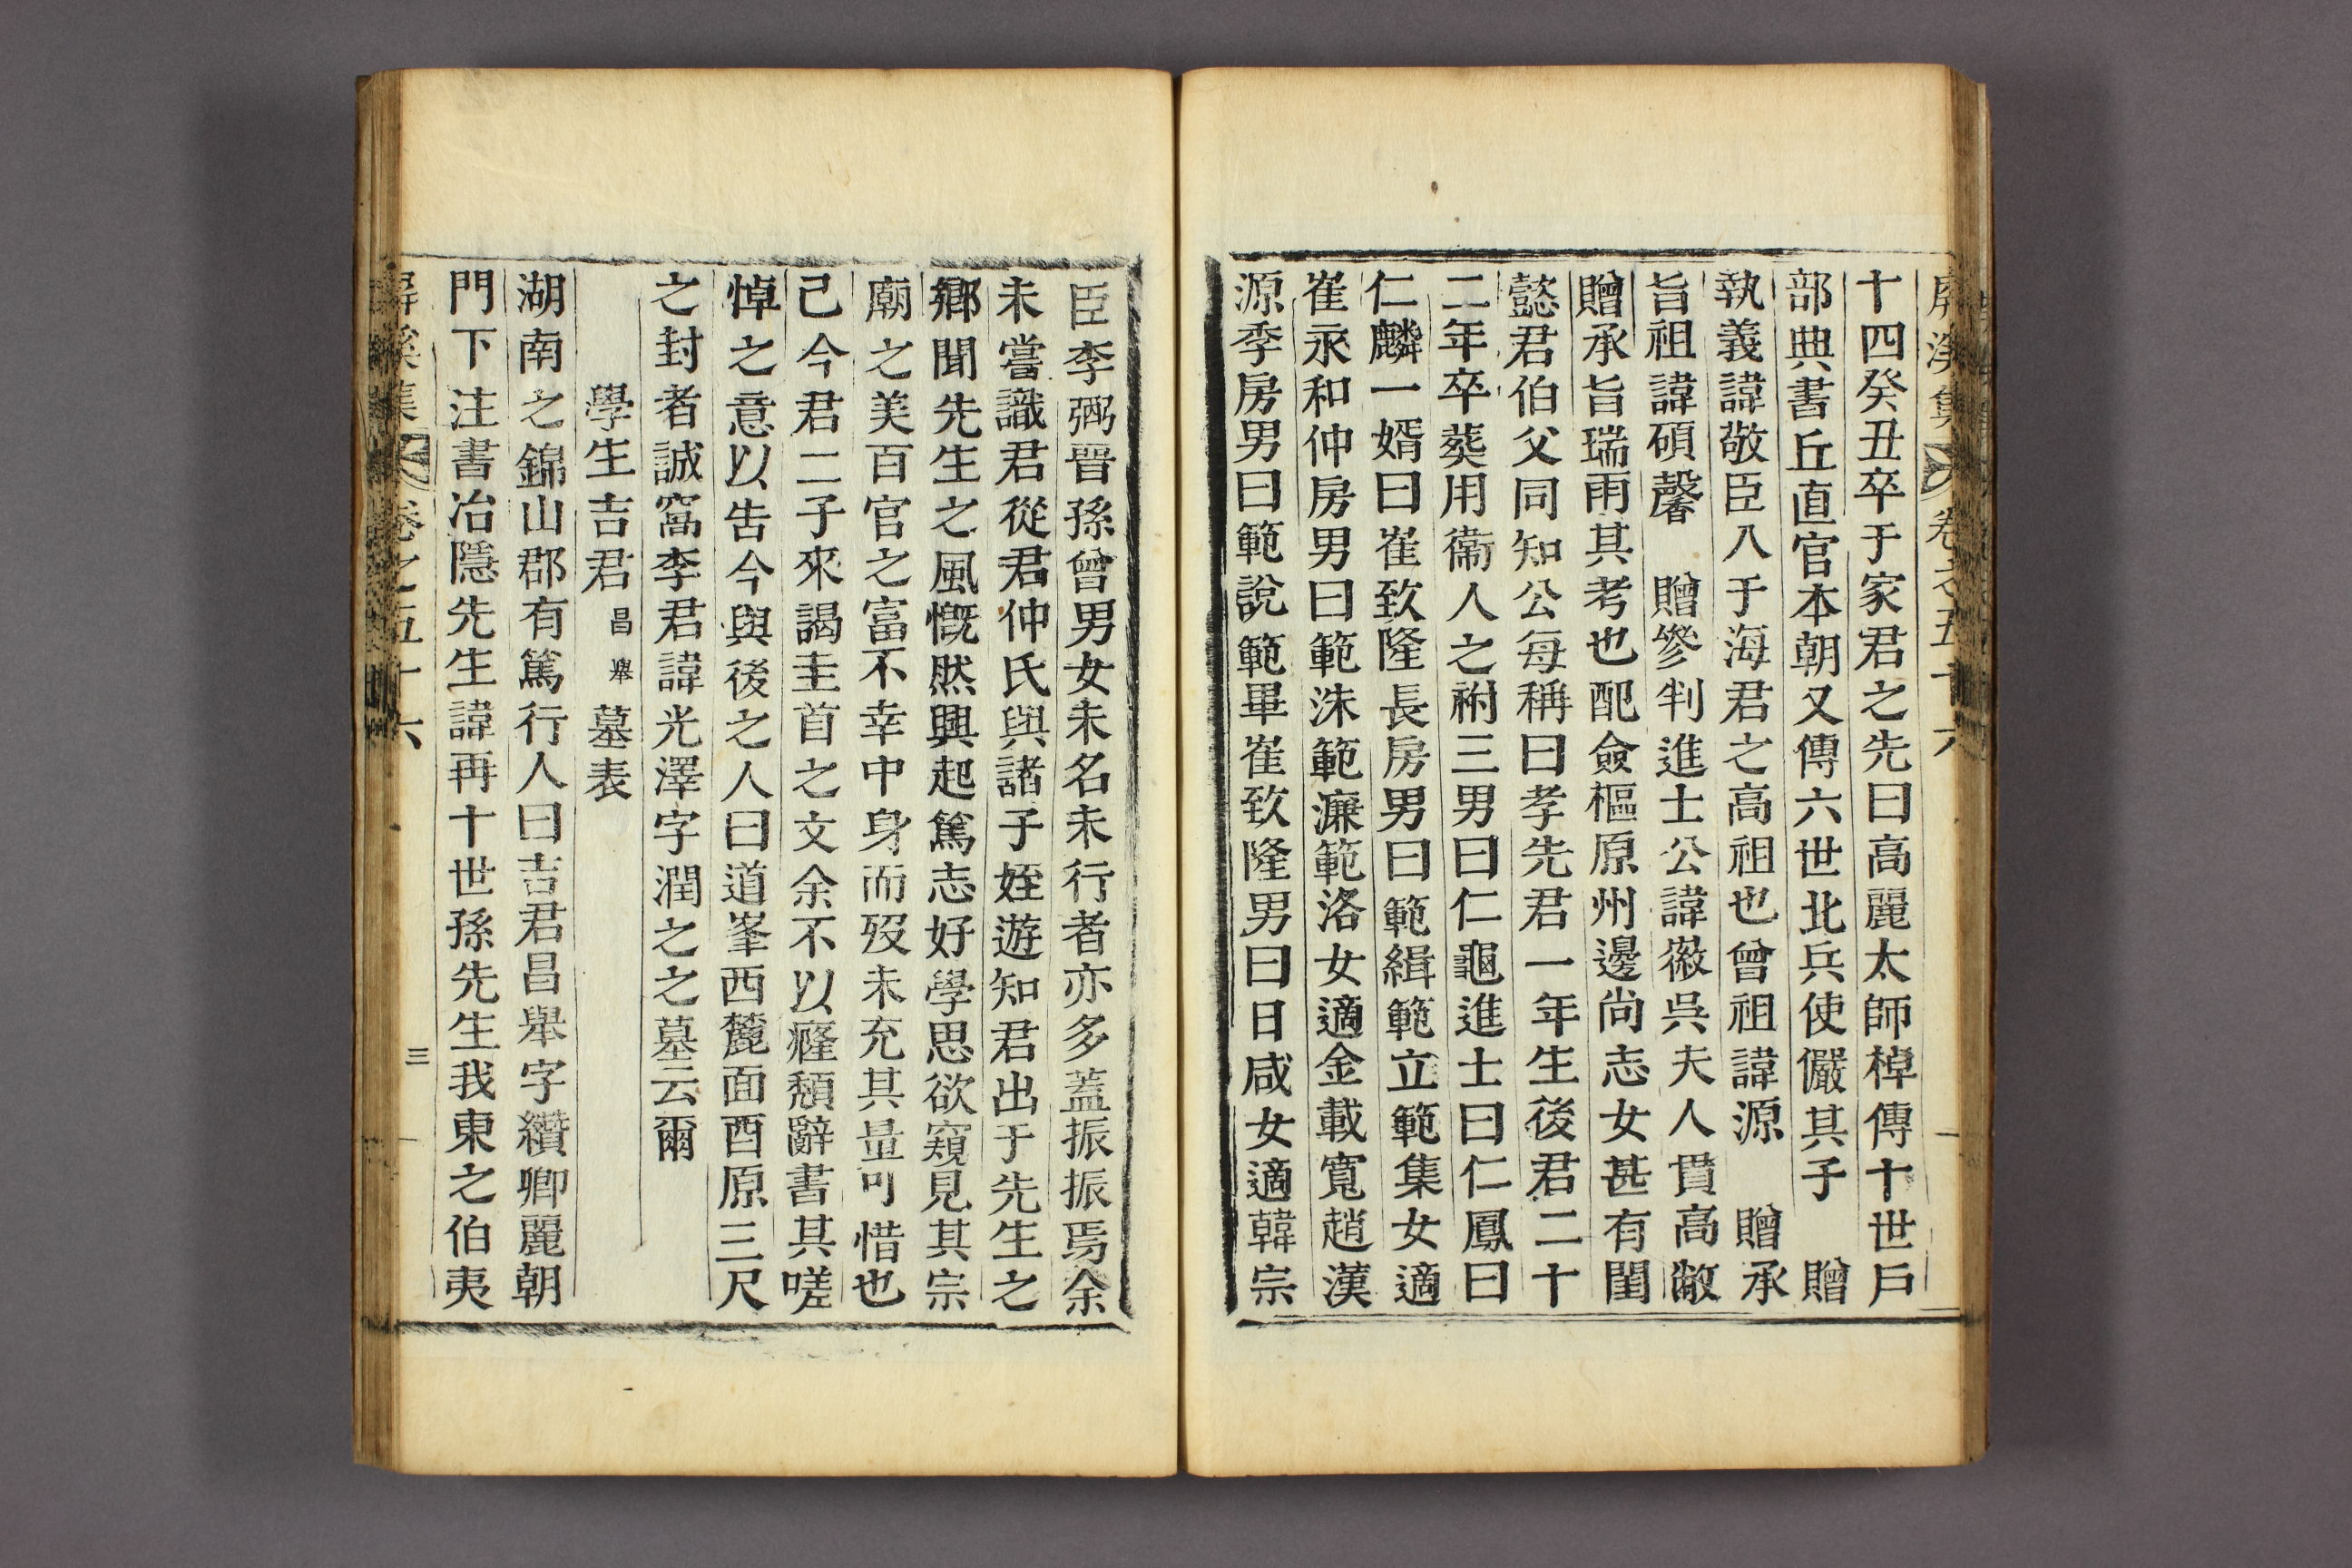 屛溪集 卷之五十六
十四癸丑卒于家君之先曰高麗太師棹傳十世戶
部典書丘直官本朝又傳六世北兵使儼其子 贈
執義諱敬臣八于海君之高祖也曾祖諱源 贈承
旨祖諱碩馨 贈參判進士公諱徽吳夫人貫高敞
贈承旨瑞雨其考也配僉樞原州邊尚志女甚有閨
懿君伯父同知公每稱曰孝先君一年生後君二十
二年卒葬用衞人之祔三男曰仁龜進士曰仁鳳曰
仁麟一婿曰崔致隆長房男曰範緝範立範集女適
崔永和仲房男曰範洙範濂範洛女適金載寬趙漢
源季房男曰範說範畢崔致隆男曰日咸女適韓宗
臣李弼晉孫曾男女未名未行者亦多蓋振振焉余
未嘗識君從君仲氏與諸子姪遊知君出于先生之
鄉聞先生之風慨然興起篤志好學思欲窺見其宗
廟之美百官之富不幸中身而歿未充其量可惜也
己今君二子來謁圭首之文余不以癃頹辭書其嗟
悼之意以告今與後之人曰道峯西麓面酉原三尺
之封者誠窩李君諱光澤字潤之之墓云爾
學生吉君昌舉墓表
湖南之錦山郡有篤行人曰吉君昌舉字纘卿麗朝
門下注書冶隱先生諱再十世孫先生我東之伯夷
屛溪集 卷之五十六 三